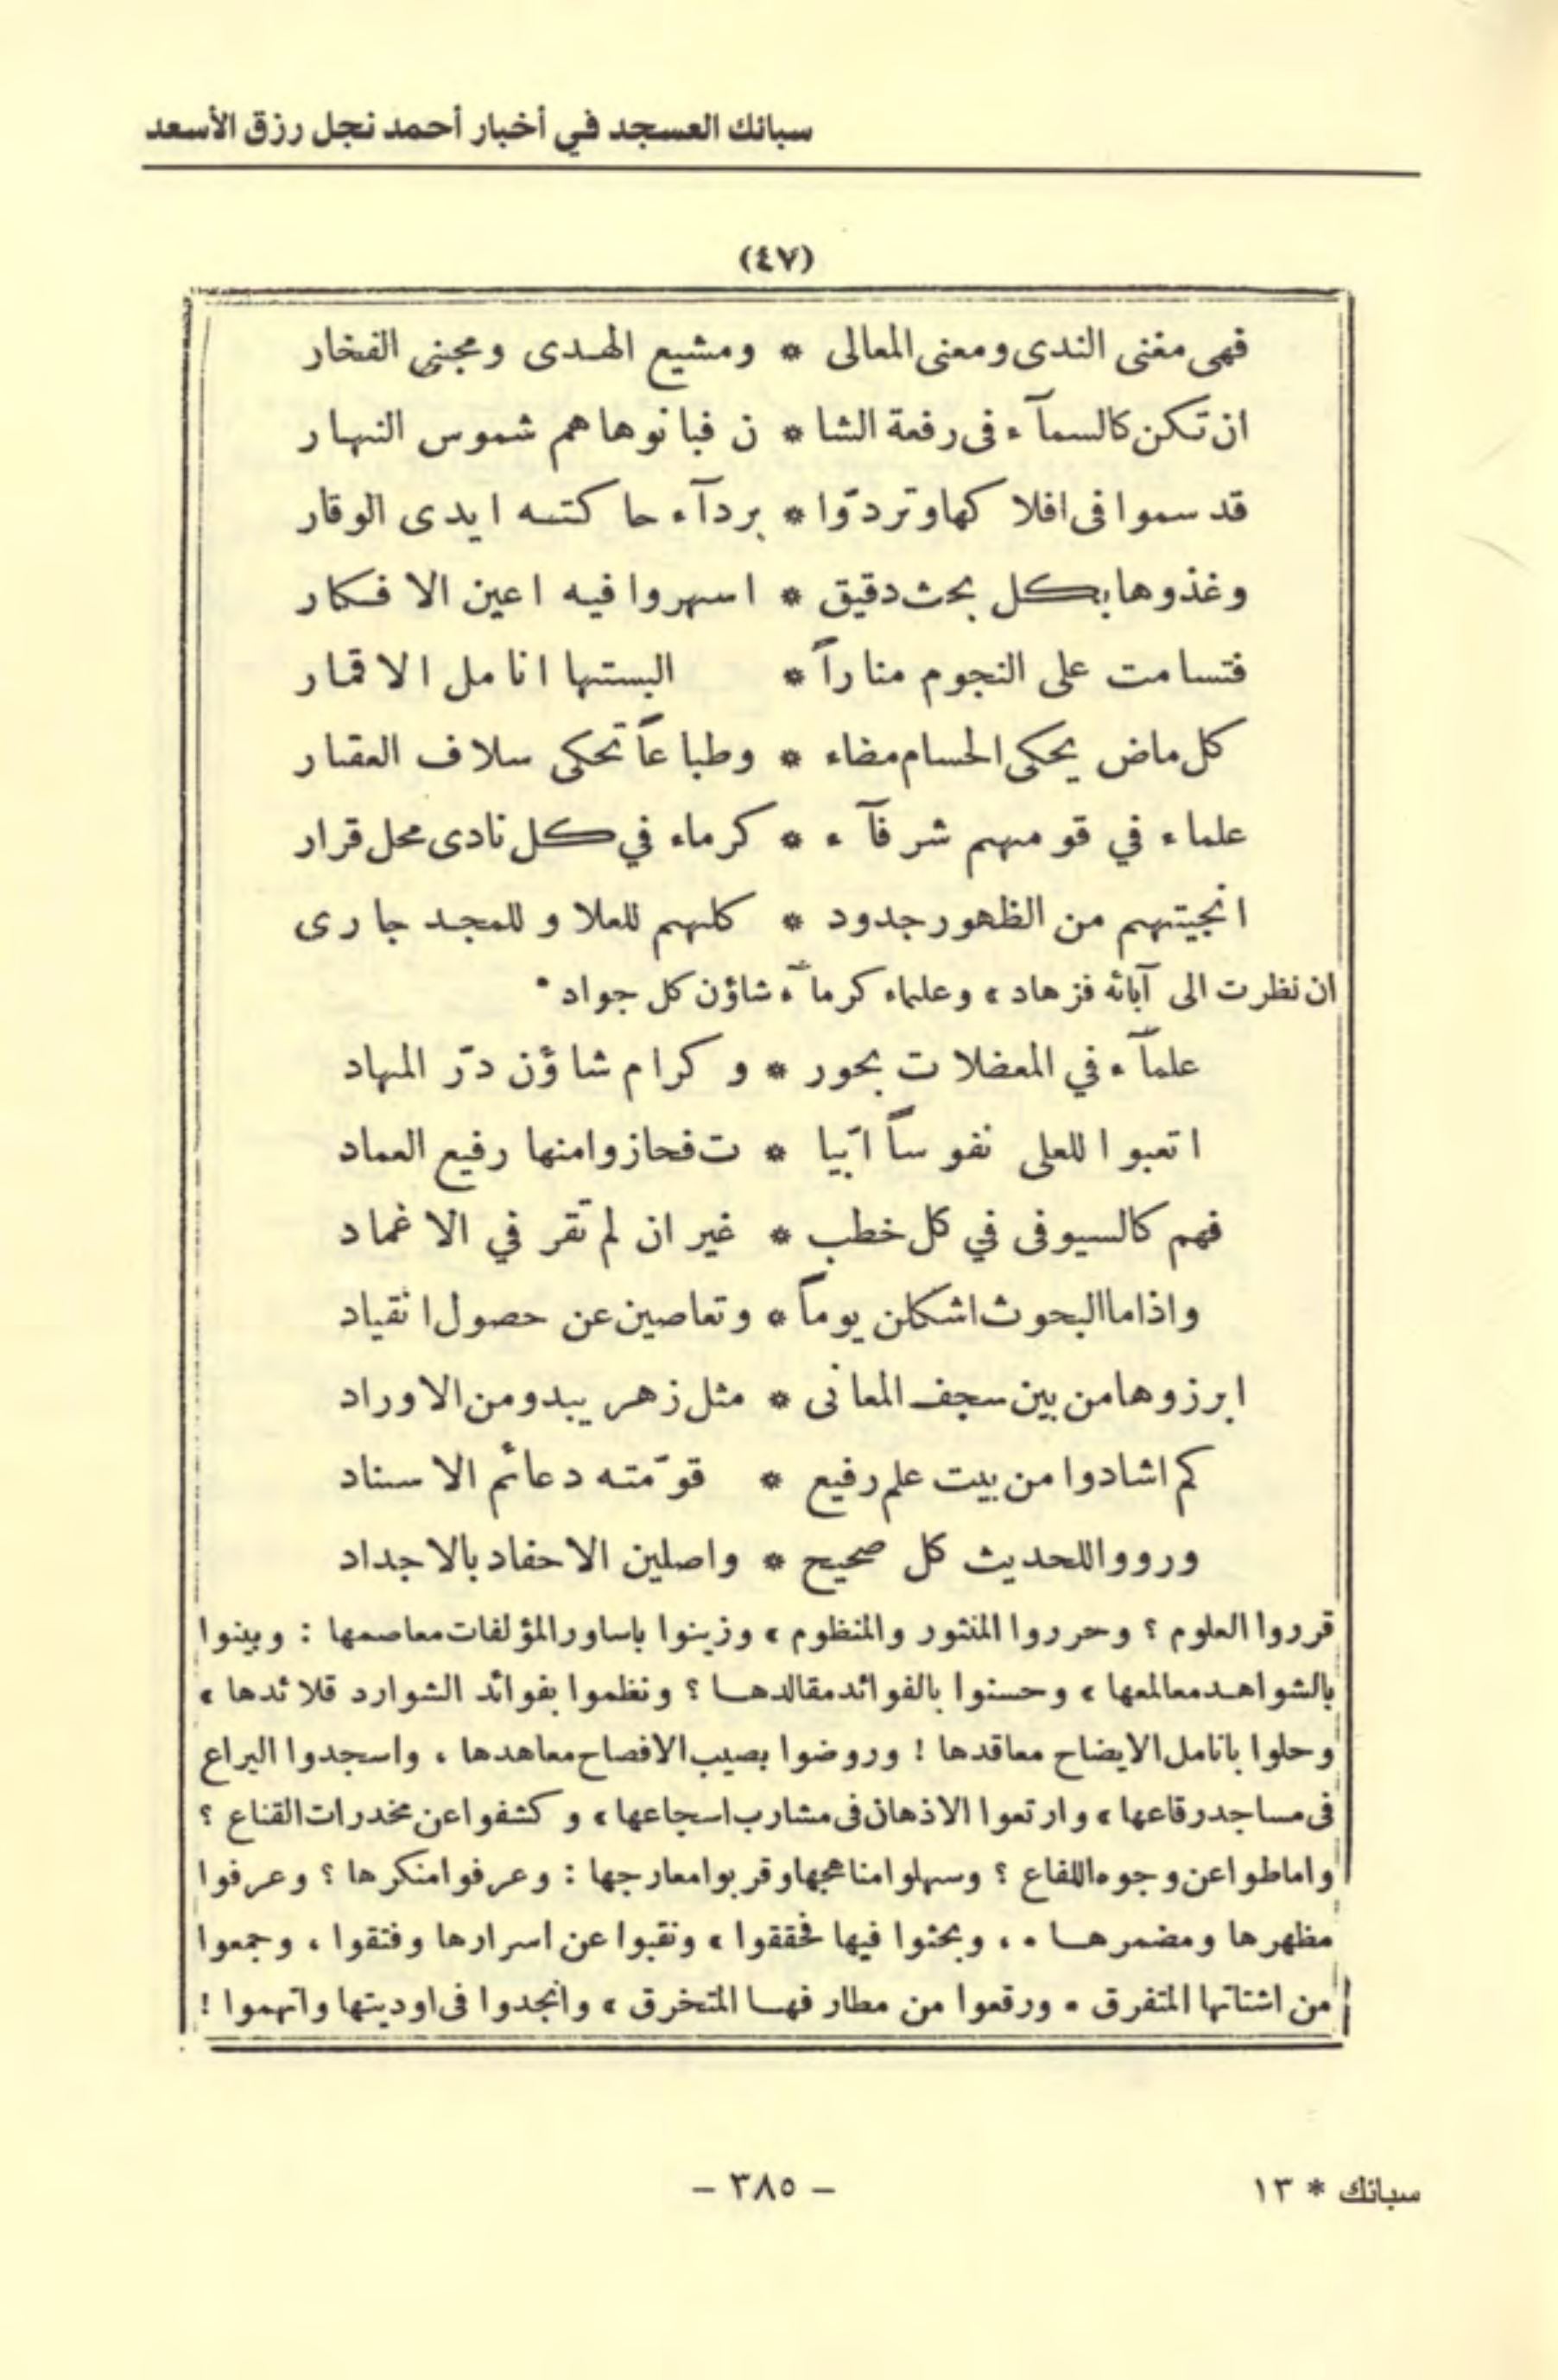 سبائك العسجد في أخبار أحمد نجل رزق الأسعد
(٤٧)
فهى مغنى الندى ومعنى المعالى * ومشيع الهدى ومجنى الفخار
ان تكن كالسمآء فى رفعة الشا * ن فبانوها هم شموس النهار
قد سموا فى افلاكها وتردّوا * بردآء حاكته ايدى الوقار
وغذوها بكل بحث دقيق * اسهروا فيه اعين الافكار
فتسامت على النجوم مناراً * البستها انامل الاقمار
كل ماض يحكى الحسام مضاء * وطباعاً تحكى سلاف العقار
علماء في قومهم شرفآء * كرماء في كل نادى محل قرار
انجيتهم من الظهور جدود * كلهم للعلا و للمجد جارى
ان نظرت الى آبائه فزهاد ، وعلماء كرمآء شاؤن كل جواد .
علمآء في المعضلات بحور * و كرام شاؤن درّ المهاد
اتعبوا للعلى نفوساً ابّيا * ت فحازوا منها رفيع العماد
فهم كالسيوفى في كل خطب * غير ان لم تقر في الاغماد
واذا ما البحوث اشكلن يوماً * وتعاصين عن حصول انقياد
ابرزوها من بين سجف المعانى * مثل زهر يبدو من الاوراد
كم اشادوا من بيت علم رفيع * قوّمته دعائم الاسناد
ورووا للحديث كل صحيح * واصلين الاحفاد بالاجداد
قرروا العلوم ؟ وحرروا المنثور والمنظوم ، وزينوا باساور المؤلفات معاصمها : وبينوا
بالشواهد معالمها ، وحسنوا بالفوائد مقالدها ؟ ونظموا بفوائد الشوارد قلائدها ،
وحلوا بانامل الايضاح معاقدها ! وروضوا بصيب الافصاح معاهدها ، واسجدوا اليراع
فى مساجد رقاعها ، وارتعوا الاذهان فى مشارب اسجاعها ، و كشفوا عن مخدرات القناع ؟
واماطوا عن وجوه اللفاع ؟ وسهلوا مناهجها وقربوا معارجها : وعرفوا منكرها ؟ وعرفوا
مظهرها ومضمرها . ، وبحثوا فيها فحققوا ، ونقبوا عن اسرارها وفتقوا ، وجمعوا
من اشتاتها المتفرق . ورقعوا من مطارفها المتخرق ، وانجدوا فى اوديتها واتهموا !
سبائك * ١٣
– ٣٨٥ –